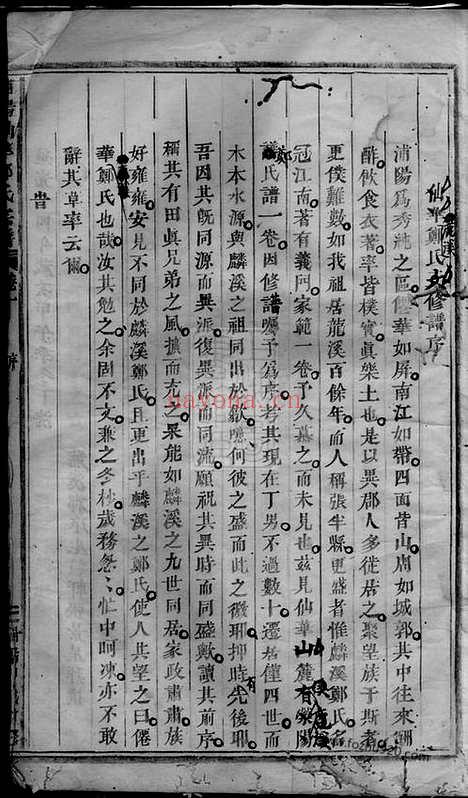 仙華鄭氏修譜序
浦陽爲秀純之區僊華如屏南江如帶四面皆山周如城郭其中往來酬
酢飲食衣著率皆樸實眞樂土也是以異郡人多徙居之聚望族于斯者
更僕難數如我祖居龍溪百餘年而人稱張半縣更盛者惟麟溪鄭氏名
冠江南著有義門家範一卷予久慕之而未見也兹見仙華山麓有滎陽
鄭氏譜一卷因修譜囑予爲序若其現在丁男不過數十遷居僅四世而
木本水源與麟溪之祖同出於歙噫何彼之盛而此之微耶抑時有先後耶
吾因其旣同源而異派復異派而同流願祝其異時而同盛歟讀其前序
稱其有田眞兄弟之風擴而充之果能如麟溪之九世同居家政肅肅族
好雍雍安見不同於麟溪鄭氏且更出乎麟溪之鄭氏使人共望之曰僊
華鄭氏也哉汝其勉之余固不文兼之冬杪歲務怱〻忙中呵凍亦不敢
辭其草率云爾
昔
序
nayona.cn